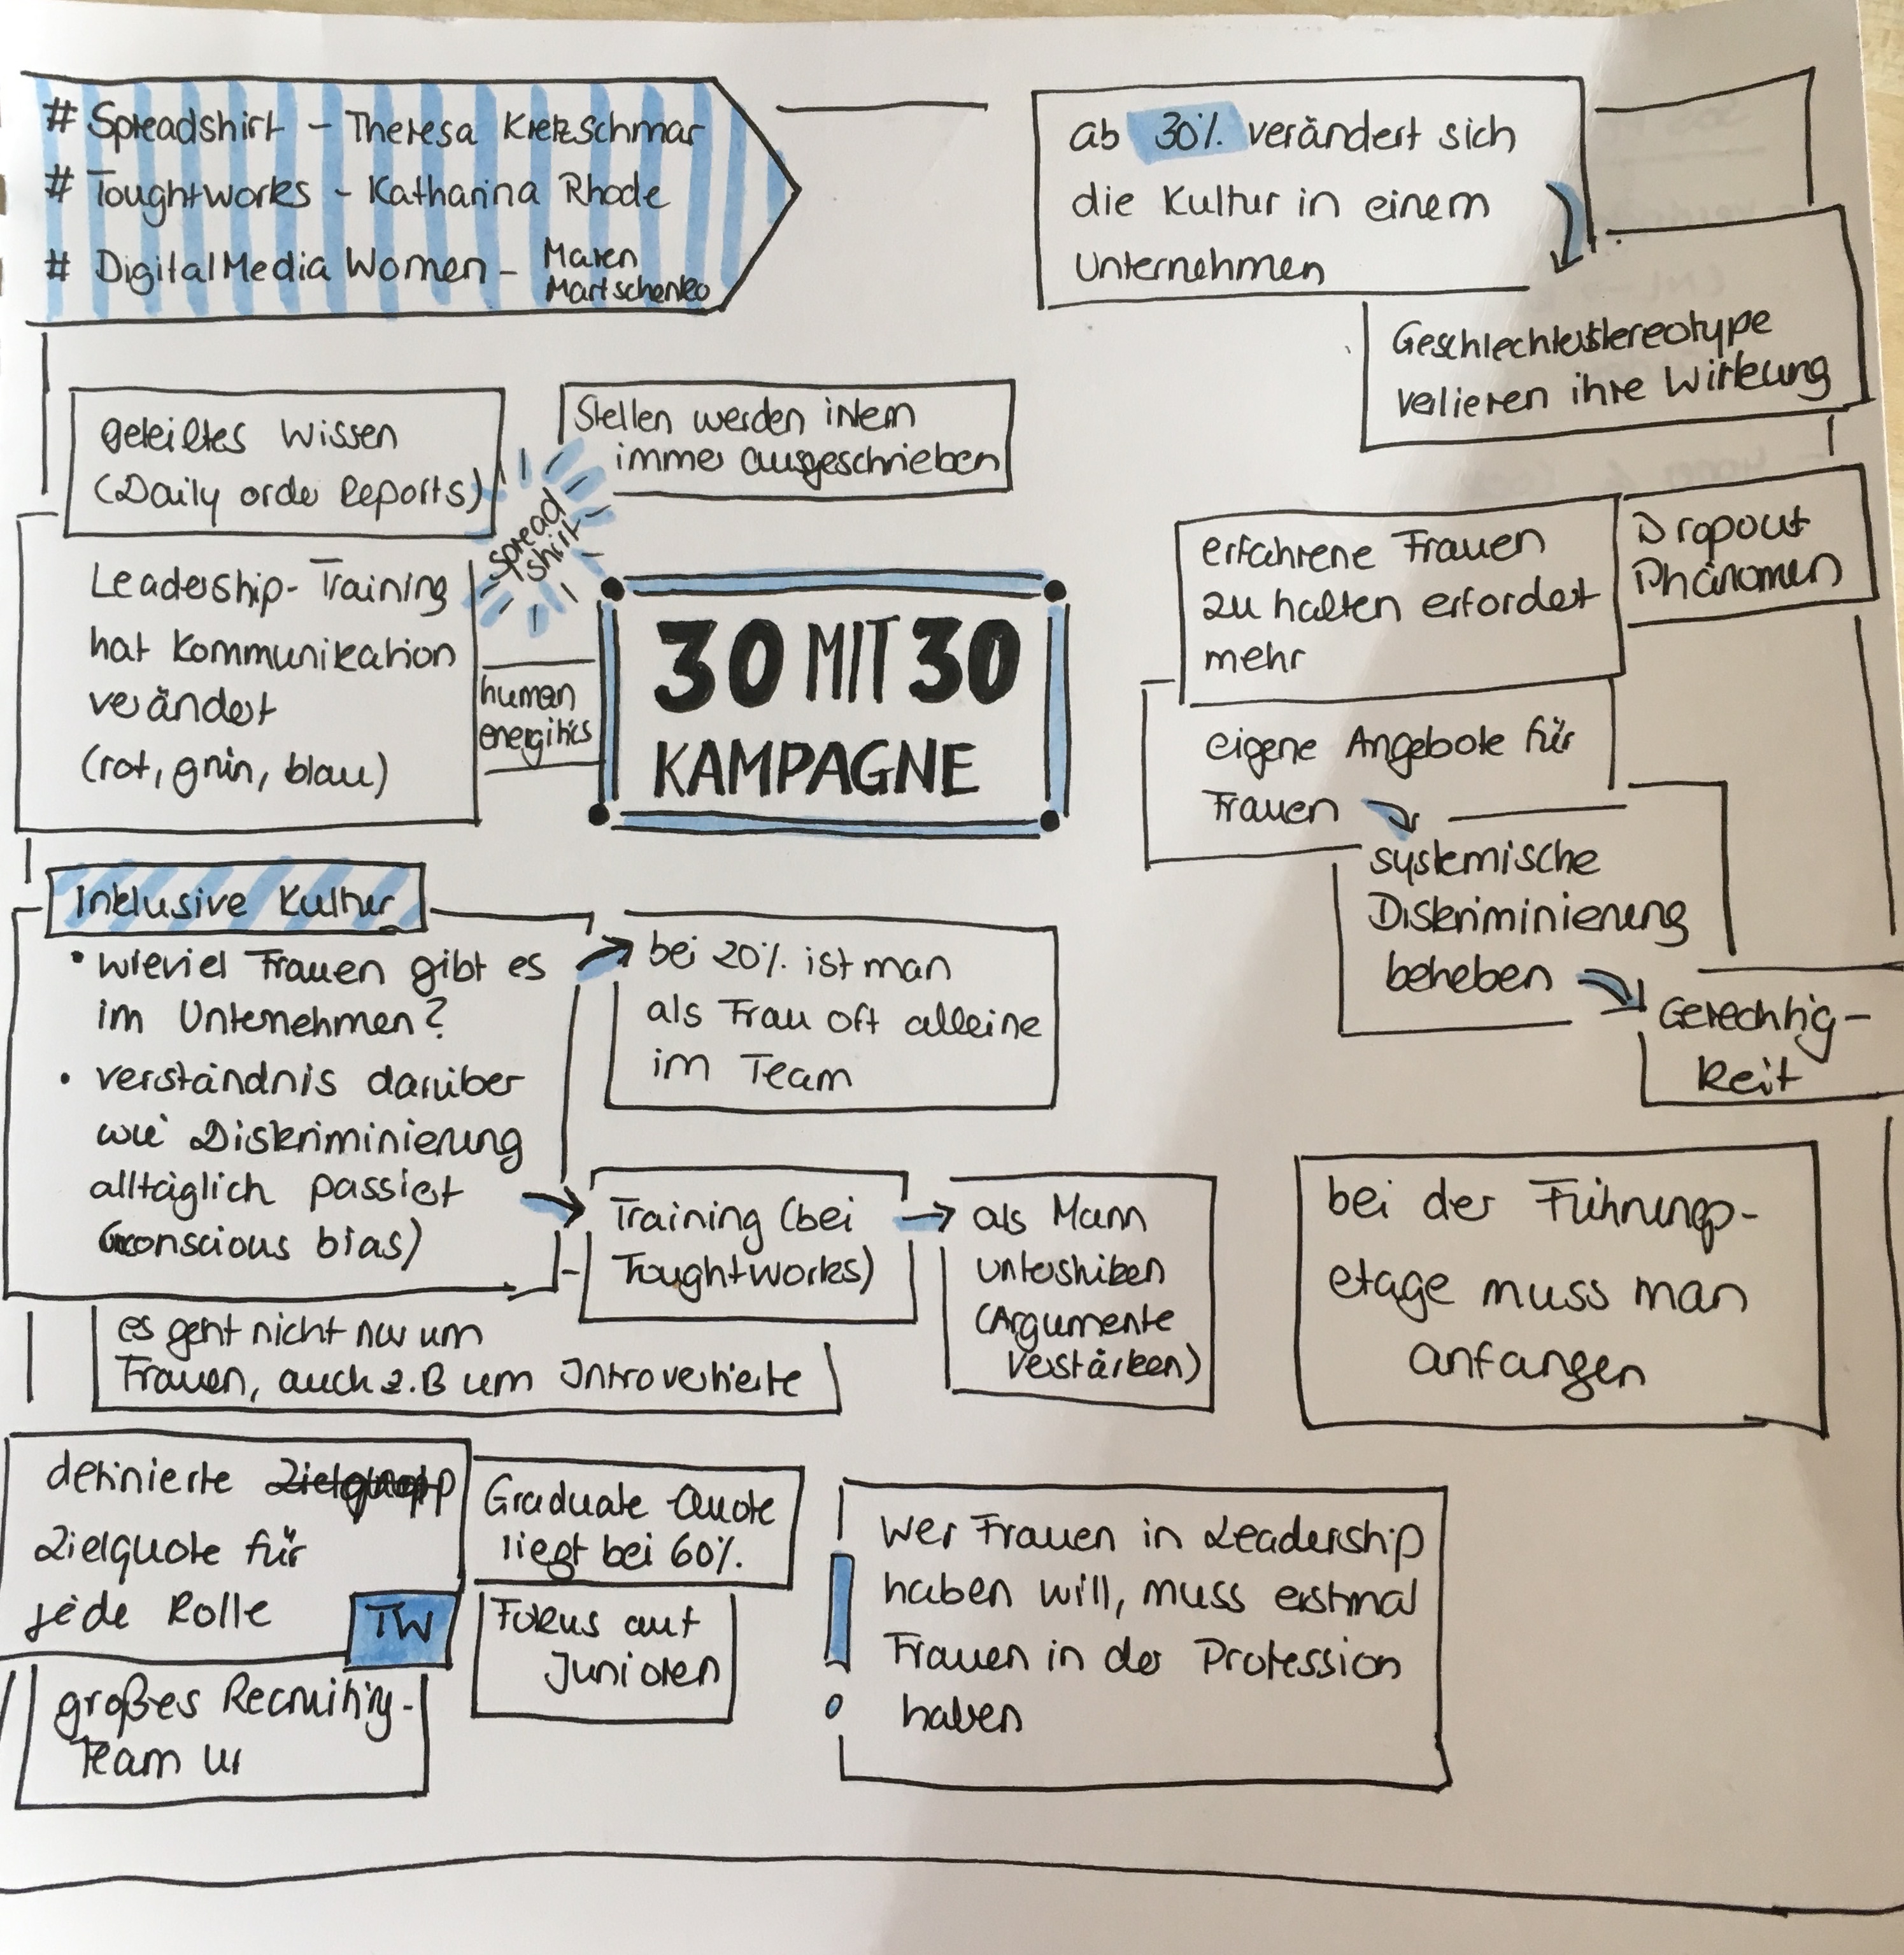 # Spreadshirt – Theresa Kretzschmar
# Toughtworks – Katharina Rhode
# DigitalMedia Women – Maren
Martschenko
ab 30% verändert sich
die Kultur in einem
Unternehmen
Geschlechterstereotype
verlieren ihre Wirkung
geteiltes Wissen
(Daily order Reports)
Stellen werden intern
immer ausgeschrieben
Spread
shirt
Leadership-Training
hat Kommunikation
verändert
(rot, grün, blau)
human
energitics
30 MIT 30
KAMPAGNE
erfahrene Frauen
zu halten erfordert
mehr
Dropout
Phänomen
eigene Angebote für
Frauen
systemische
Diskriminierung
beheben
Gerechtig-
keit
Inklusive Kultur
• wieviel Frauen gibt es
im Unternehmen?
• verständnis darüber
wie Diskriminierung
alltäglich passiert
(unconscious bias)
bei 20% ist man
als Frau oft alleine
im Team
Training (bei
Toughtworks)
als Mann
unterstützen
(Argumente
verstärken)
bei der Führungs-
etage muss man
anfangen
es geht nicht nur um
Frauen, auch z.B um Introvertierte
definierte
Zielquote für
jede Rolle
TW
Graduate Quote
liegt bei 60%.
Fokus auf
Junioren
großes Recruiting-
Team
wer Frauen in Leadership
haben will, muss erstmal
Frauen in der Profession
haben